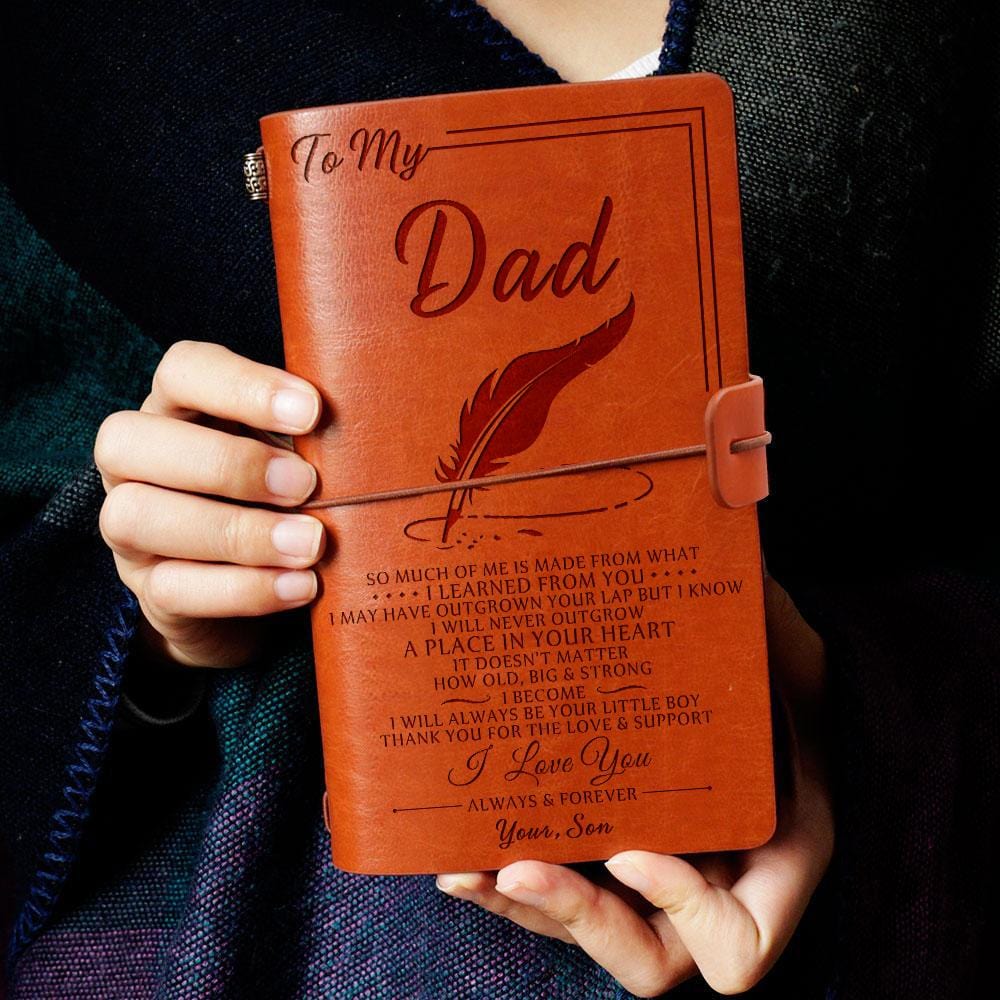 To My
Dad
SO MUCH OF ME IS MADE FROM WHAT
I LEARNED FROM YOU
I MAY HAVE OUTGROWN YOUR LAP BUT I KNOW
I WILL NEVER OUTGROW
A PLACE IN YOUR HEART
IT DOESN'T MATTER
HOW OLD, BIG & STRONG
I BECOME
I WILL ALWAYS BE YOUR LITTLE BOY
THANK YOU FOR THE LOVE & SUPPORT
I Love You
ALWAYS & FOREVER
Your, Son